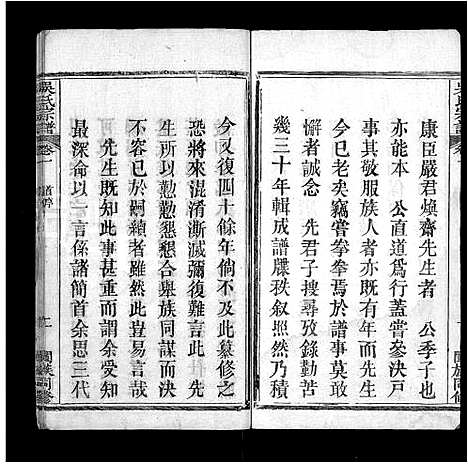 康臣嚴君煥齋先生者　公季子也
亦能本　公直道爲行蓋嘗叅決戸
事其敬服族人者亦旣有年而先生
今已老矣竊嘗拳拳焉於譜事罔敢
懈者誠念　先君子搜尋攷錄勤苦
幾三十年輯成譜牒秩叙照然乃積
今又復四十餘年倘不及此纂修之
恐將來混淆漸滅彌復難言此　先
生所以懃懃懇懇合舉族同謀而決
不容已於嗣續者雖然此豈易言哉
先生旣知此事甚重而謂余受知
最深命以一言係諸簡首余思三代
吳氏宗譜
卷一
譜序
二
闔族同修